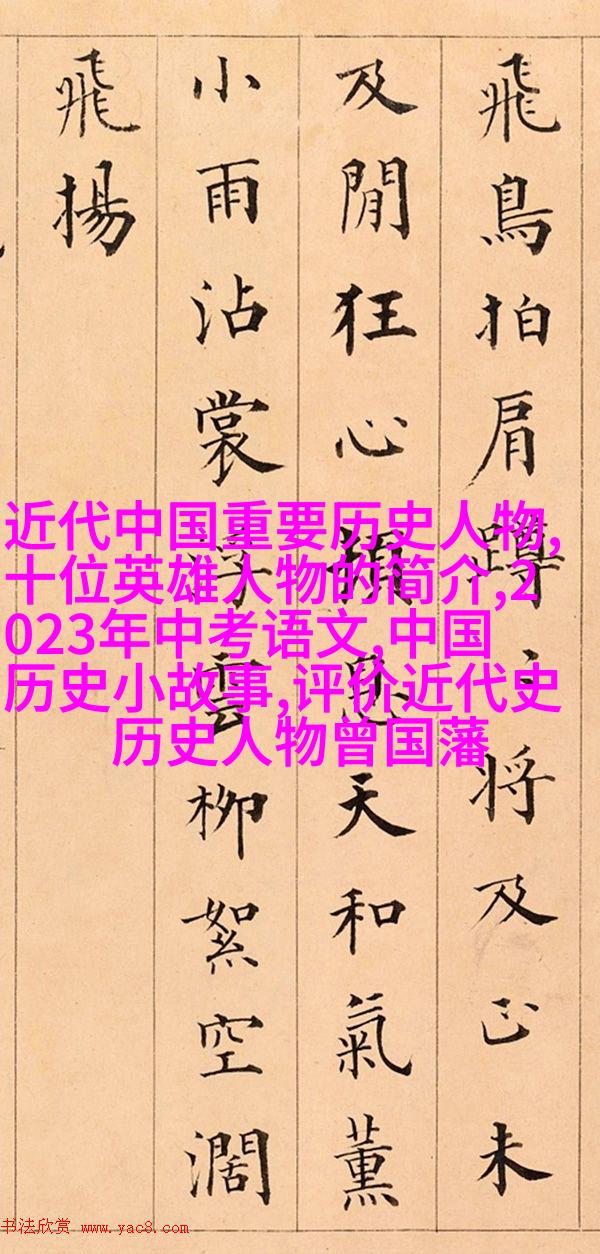 飛鳥拍肩蹲〻将及已未
及閒狂心天和氣薰
小雨沾裳浮雲柳絮空濶
飛揚
近代中国重要历史人物,
十位英雄人物的简介,2
023年中考语文,中国
历史小故事,评价近代史
历史人物曾国藩
书法欣赏 www.yac8.com